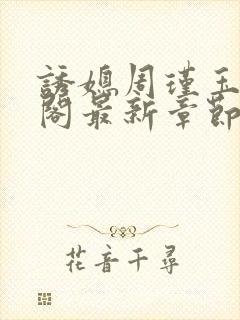 誘媳周瑾玉
閣最新章節
花音千尋